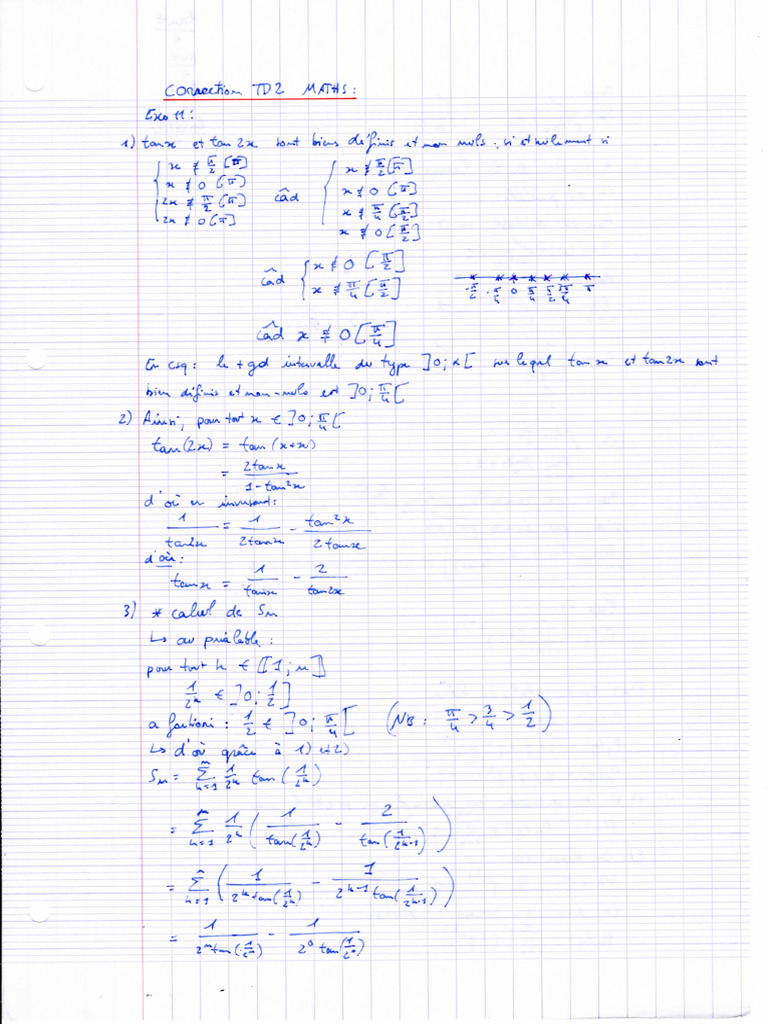 Correction TD2 MATHS :
Exo 11 :
1) tan x et tan 2x sont biens définis et non nuls si et seulement si
{ x ≢ π/2 [π]
x ≢ 0 [π]
2x ≢ π/2 [π]
2x ≢ 0 [π]
càd
{ x ≢ π/2 [π]
x ≢ 0 [π]
x ≢ π/4 [π/2]
x ≢ 0 [π/2]
càd { x ≢ 0 [π/2]
x ≢ π/4 [π/2]
-π/2 -π/4 0 π/4 π/2 3π/4 π
càd x ≢ 0 [π/4]
En csq : le + gd intervalle du type ]0 ; α[ sur lequel tan x et tan 2x sont
bien définis et non-nuls est ]0 ; π/4[
2) Ainsi, pour tout x ∈ ]0 ; π/4[
tan(2x) = tan(x+x)
= 2tan x / (1 - tan²x)
d'où en inversant :
1/tan2x = 1/2tanx - tan²x/2tanx
d'où :
tanx = 1/tanx - 2/tan2x
3) * calcul de Sn
↳ au préalable :
pour tout k ∈ [[1 ; n]]
1/2^k ∈ ]0 ; 1/2]
a fortiori : 1/2 ∈ ]0 ; π/4[ (NB : π/4 > 3/4 > 1/2)
↳ d'où grâce à 1) et 2)
Sn = Σ_{k=1}^{n} 1/2^k tan(1/2^k)
= Σ_{k=1}^{n} 1/2^k (1/tan(1/2^k) - 2/tan(1/2^{k-1}))
= Σ_{k=1}^{n} (1/(2^k tan(1/2^k)) - 1/(2^{k-1} tan(1/2^{k-1})))
= 1/(2^n tan(1/2^n)) - 1/(2^0 tan(1/2^0))